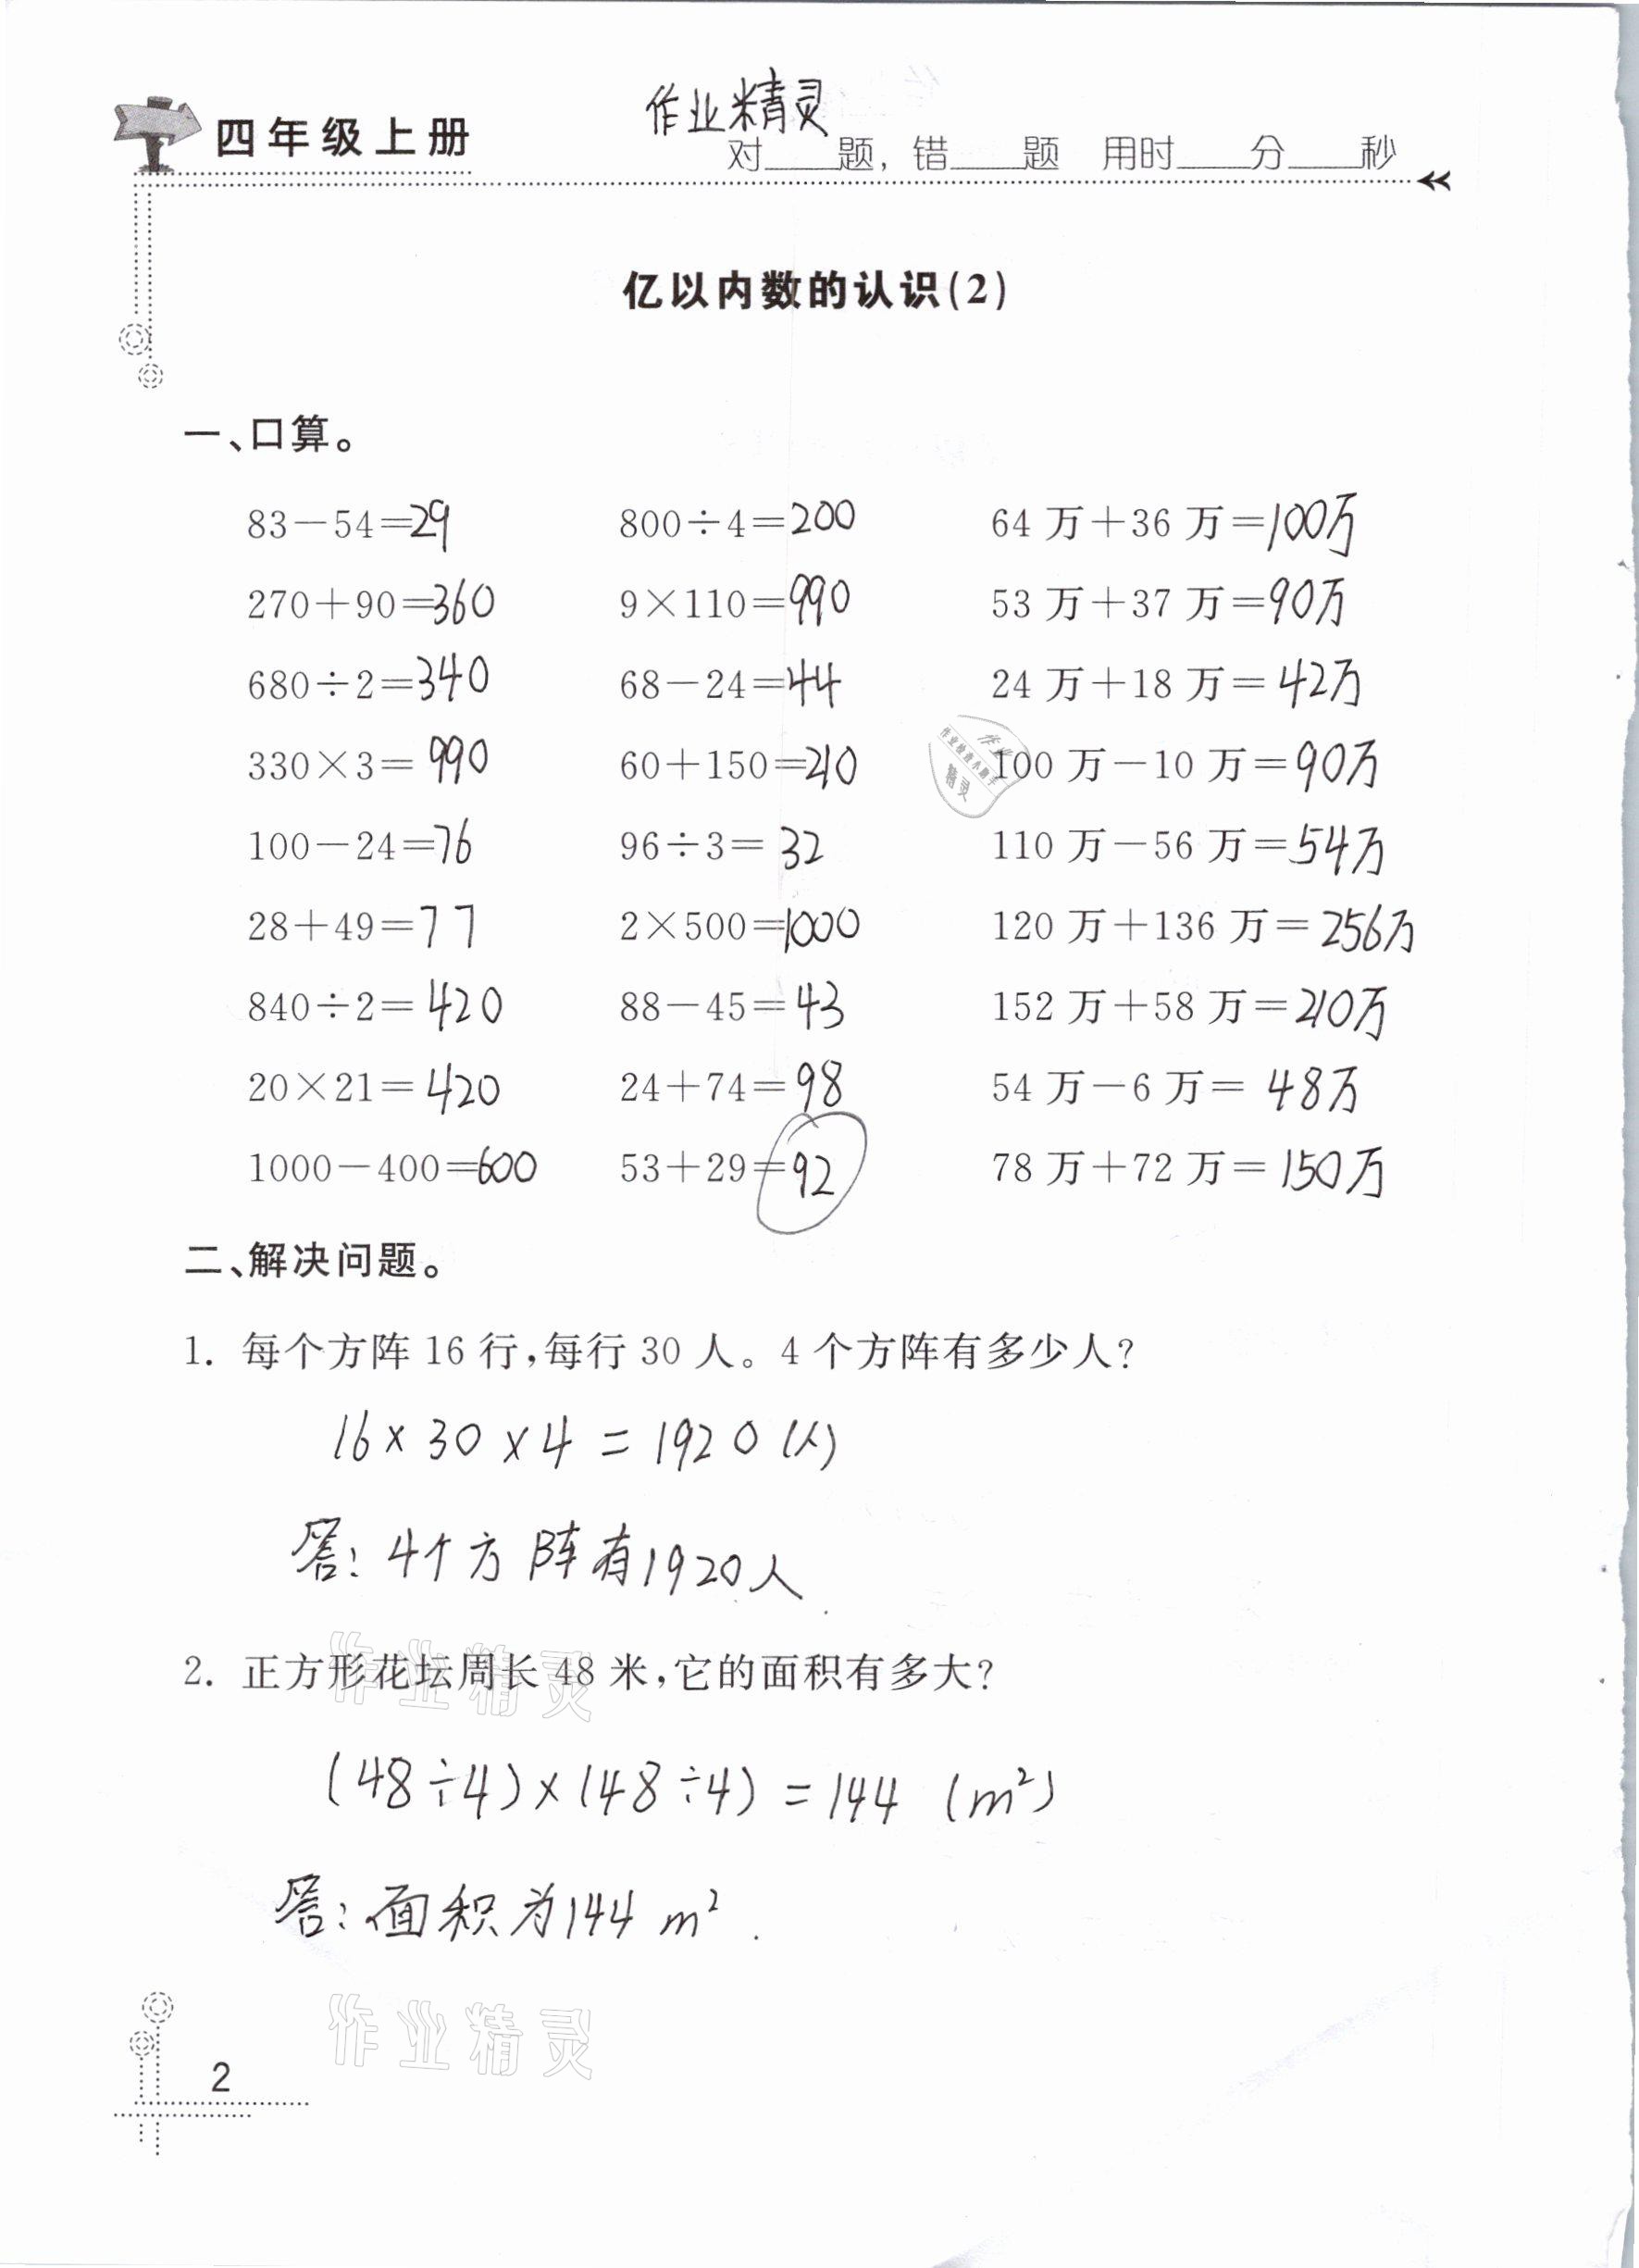 四年级上册
作业精灵
对____题，错____题 用时____分____秒
亿以内数的认识(2)
一、口算。
83－54＝29 800÷4＝200 64万＋36万＝100万
270＋90＝360 9×110＝990 53万＋37万＝90万
680÷2＝340 68－24＝44 24万＋18万＝42万
330×3＝990 60＋150＝210 100万－10万＝90万
100－24＝76 96÷3＝32 110万－56万＝54万
28＋49＝77 2×500＝1000 120万＋136万＝256万
840÷2＝420 88－45＝43 152万＋58万＝210万
20×21＝420 24＋74＝98 54万－6万＝48万
1000－400＝600 53＋29＝92 78万＋72万＝150万
二、解决问题。
1. 每个方阵16行，每行30人。4个方阵有多少人？
16×30×4＝1920(人)
答：4个方阵有1920人
2. 正方形花坛周长48米，它的面积有多大？
作业精灵
(48÷4)×(48÷4)＝144 (m²)
答：面积为144 m².
作业精灵
2